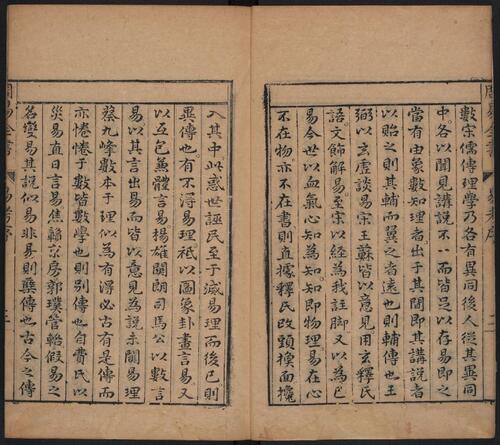 數宗儒傳理學乃各有異同後人從其異同
中各以聞見講說不一而皆足以存易即之
當有由象數知理者出于其間即其講說者
以貽之則其輔而翼之者遠也則輔傳也王
弼以玄虛談易宗王蘇皆以意見用玄釋氏
語文飾解易至宗以經為我註脚又以為巳
易今世以血氣心知為知知即物理易在心
不在物亦不在書則直據釋氏改頭換面攙
入其中此惑世誣民至于滅易理而後已則
異傳也有不淂易理祇以圖象卦畫言易又
以互包兼體言易楊雄關朗司馬公以數言
易以其言出易而皆以意見為說未関易理
蔡九峰數本于理似為有淂必古有是傳而
亦惓惓于數皆數學也則别傳也自費氏以
災易直曰言易焦贛京房郭璞管輅假易之
名變易其說似易非易則孽傳也古今之傳
周易全書 易考序